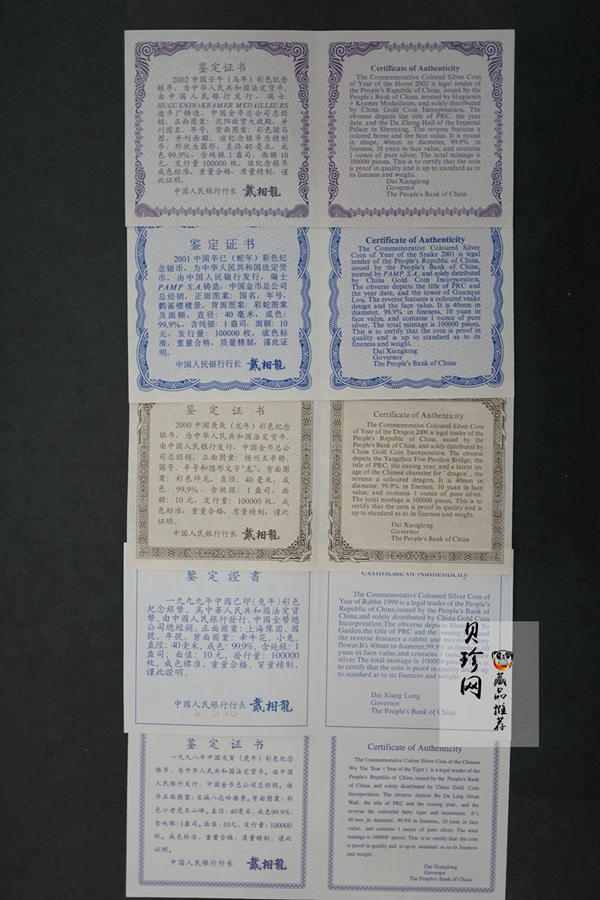 鉴定证书
2002中国壬午（马年）彩色纪念
银币，为中华人民共和国法定货币，
由中国人民银行发行，瑞士
HUGUENIN+KRAMER MEDAILLEURS
造币厂铸造，中国金币总公司总经
销，正面图案：沈阳故宫大政殿，并
刊国名、年号，背面图案：彩色骏马
图，并刊面额，该纪念银币为精制
币，形状为圆形，直径40毫米，成
色99.9%，含纯银1盎司，面额10
元，发行量100000枚，该纪念银币
成色标准，重量合格，质量精制，谨
此证明。
中国人民银行行长 戴相龍
Certificate of Authenticity
The Commemorative Colored Silver Coin
of Year of the Horse 2002 is legal tender of the
People's Republic of China, issued by the
People's Bank of China, minted by Huguenin
+ Kramer Medailleurs, and solely distributed
by China Gold Coin Incorporation. The
obverse depicts the title of PRC, the year
date, and the Da Zheng Hall of the Imperial
Palace in Shenyang. The reverse features a
colored horse and the face value. It is round
in shape, 40mm in diameter, 99.9% in
fineness, 10 yuan in face value, and contains
1 ounce of pure silver. The total mintage is
100000 pieces. This is to certify that the coin
is proof in quality and is up to standard as to
its fineness and weight.
Dai Xianglong
Governor
The People's Bank of China
鉴定证书
2001中国辛巳（蛇年）彩色纪
念银币，为中华人民共和国法定货
币，由中国人民银行发行，瑞士
PAMP S.A.铸造，中国金币总公司
总经销，正面图案：国名、年号，
鹳雀楼楼，背面图案：彩蛇图案
及面额，直径：40毫米，成色：
99.9%，含纯银：1盎司，面额：10
元，发行量：100000枚，成色标
准，重量合格，质量精制，谨此证
明。
中国人民银行行长 戴相龍
Certificate of Authenticity
The Commemorative Coloured Silver
Coin of Year of the Snake 2001 is legal
tender of the People's Republic of China,
issued by the People's Bank of China,
minted by PAMP S.A., and solely distributed
by China Gold Coin Incorporation.
The obverse depicts the title of PRC and
the year date, and the tower of Guanque
Lou. The reverse features a coloured snake
design and the face value. It is 40mm in
diameter, 99.9% in fineness, 10 yuan in
face value, and contains 1 ounce of pure
silver. The total mintage is 100000 pieces.
This is to certify that the coin is proof in
quality and is up to standard as to its
fineness and weight.
Dai Xianglong
Governor
The People's Bank of China
鉴定证书
2000中国庚辰（龙年）彩色纪念
银币，为中华人民共和国法定货币，
由中国人民银行发行，中国金币总公
司总经销。正面图案：扬州五亭桥，
国号、年号和隐形文字“龙”。背面图
案：彩色祥龙，直径：40毫米，成
色：99.9%，含纯银：1盎司，面
额：10元，发行量：100000枚，成
色标准，重量合格，质量精制，谨此
证明。
中国人民银行行长 戴相龍
Certificate of Authenticity
The Commemorative Coloured Silver Coin
of Year of the Dragon 2000 is legal tender of the
People's Republic of China, issued by the
People's Bank of China, and solely distributed by
China Gold Coin Incorporation. The obverse
depicts the Yangzhou Five Pavilion Bridge, the
title of PRC, the issuing year, and a latent im-
age of the Chinese character for "dragon", the
reverse a coloured dragon. It is 40mm in
diameter, 99.9% in fineness, 10 yuan in face
value, and contains 1 ounce of pure silver. The
total mintage is 100000 pieces. This is to
certify that the coin is proof in quality and is
up to standard as to its fineness and weight.
Dai Xianglong
Governor
The People's Bank of China
鑒定證書
一九九九年中國己卯（兔年）彩色
紀念銀幣，爲中華人民共和國法定貨
幣，由中國人民銀行發行，中國金幣總
公司總經銷。正面圖案：上海豫園、國
號、年號，背面圖案：牽牛花、小兔，
直徑：40毫米，成色：99.9%，含純銀：1
盎司，面值：10元，發行量：100000
枚。成色標准，重量合格，質量精制，
謹此證明。
中國人民銀行行長 戴相龍
Certificate of Authenticity
The Commemorative Coloured Silver Coin of
Year of Rabbit 1999 is a legal tender of the People's
Republic of China,issued by the People's Bank of
China,and solely distributed by China Gold Coin
Incorporation.The obverse depicts Yu
Garden,the title of PRC and the issuing
the reverse features a rabbit and
flower.It's 40mm in diameter,99.9% in fineness, 10
yuan in face value,and contains 1 ounce of
silver.The total mintage is 100000 pieces
to certify that the coin is proof in quality and is up
to standard as to its fineness and weight.
Dai Xiang Long
Governor
The People's Bank of China
贝珍网
藏品推荐
鉴定证书
一九九八年中国戊寅（虎年）彩色纪念
银币，为中华人民共和国法定货币。由中国
人民银行发行，中国金币总公司总经销。该
币正面图案：长城八达岭楼景。背面图案：彩
色小老虎及山峰。直径：40毫米，成色99.9%，
含纯银：1盎司，面值：10元，发行量：100000
枚。成色标准，重量合格，质量精制，谨此
证明。
中国人民银行行长 戴相龍
Certificate of Authenticity
The Commemorative Colour Silver Coin of the Chinese
Wu Yin Year (Year of the Tiger) is a legal tender of the
People's Republic of China, issued by the People's Bank
of China, and solely distributed by China Gold Coin
Incorporation. The obverse depicts Ba Da Ling Great
Wall, the title of PRC and the issuing year, and the
reverse the colourful baby tiger and mountains. It's
40 mm in diameter, 99.9% in fineness, 10 yuan in face
value, and contains 1 ounce of pure silver. The total
mintage is 100000 pieces. This is to certify that the coin
is proof in quality and is up to standard as to its
fineness and weight.
Dai Xianglong
Governor
The People's Bank of China